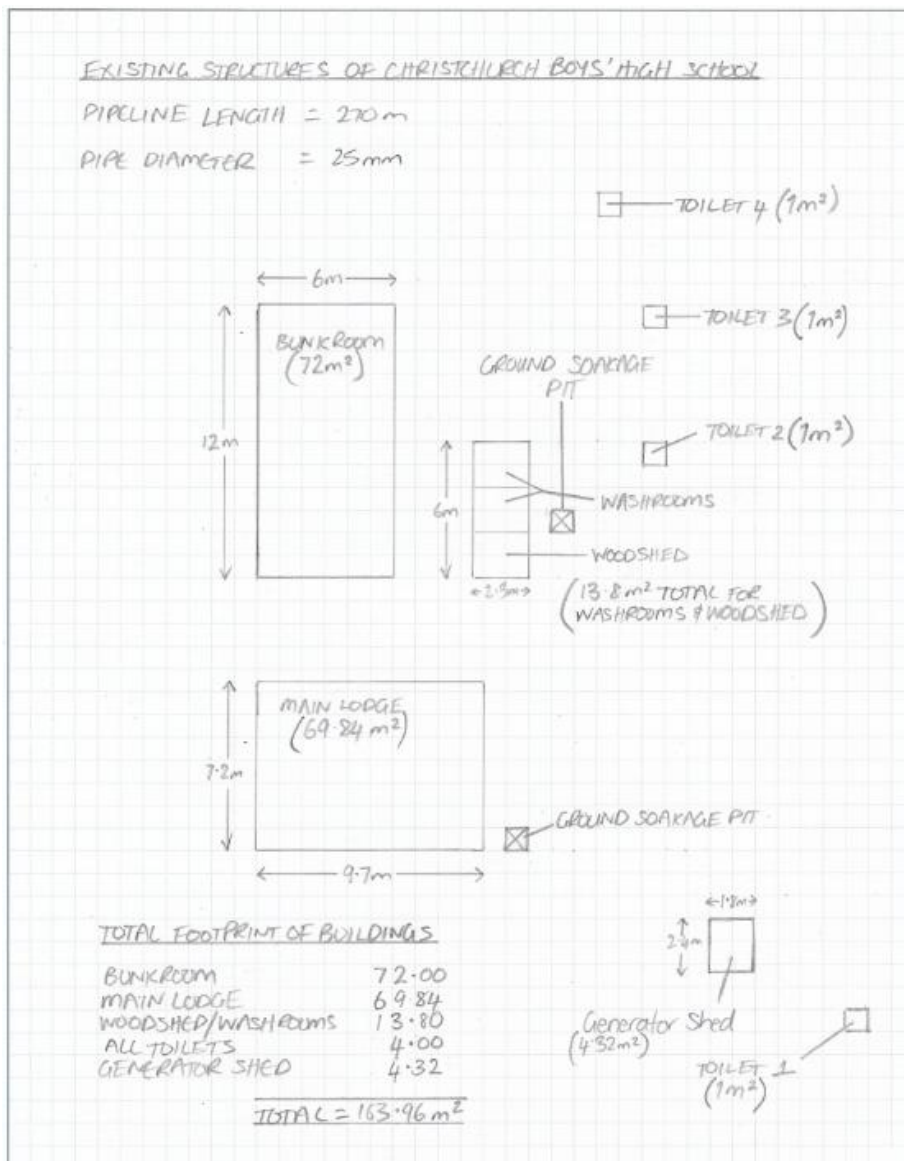 EXISTING STRUCTURES OF CHRISTCHURCH BOYS' HIGH SCHOOL
PIPELINE LENGTH = 270m
PIPE DIAMETER = 25mm
TOILET 4 (1m²)
6m
TOILET 3 (1m²)
BUNKROOM
(72m²)
GROUND SOAKAGE
PIT
TOILET 2 (1m²)
12m
WASHROOMS
6m
WOODSHED
2.3m
(13.8m² TOTAL FOR
WASHROOMS & WOODSHED)
MAIN LODGE
(69.84 m²)
7.2m
GROUND SOAKAGE PIT
9.7m
1.8m
TOTAL FOOTPRINT OF BUILDINGS
2.4m
BUNKROOM 72.00
MAIN LODGE 69.84
WOODSHED/WASHROOMS 13.80
ALL TOILETS 4.00
GENERATOR SHED 4.32
TOTAL = 163.96m²
Generator Shed
(4.32m²)
TOILET 1
(1m²)